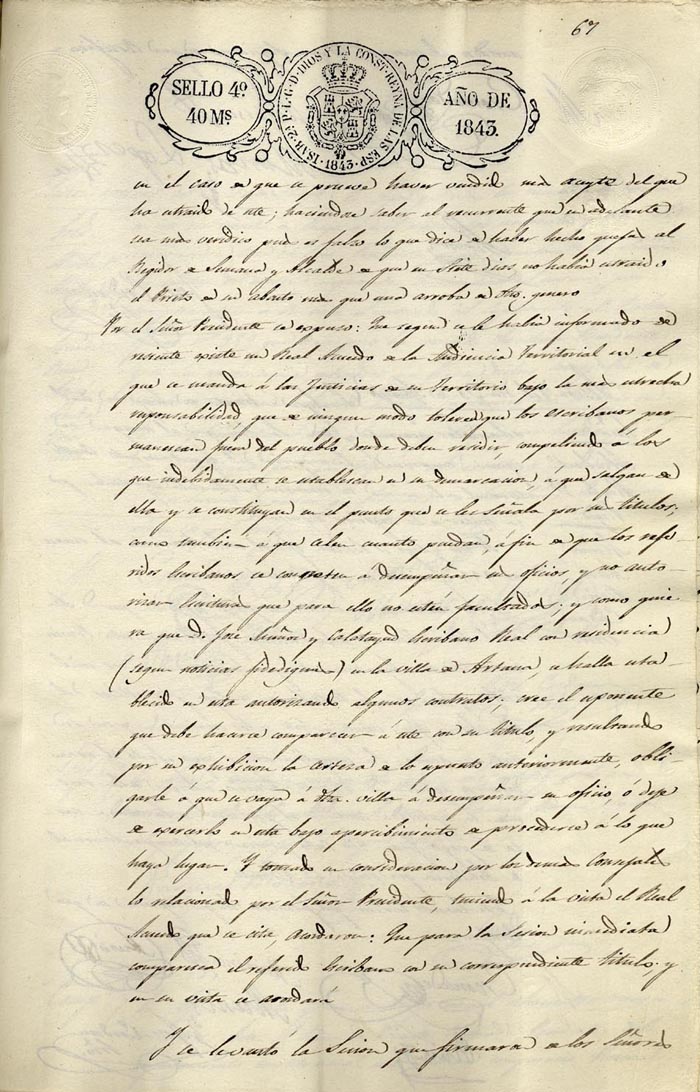 67
SELLO 4º.
40 Mˢ
ISAB. 2ª P. L. G. D. DIOS Y LA CONST. REYNA DE LAS ESP. 1843.
AÑO DE
1843.
en el caso de que se prueve haver vendido mas aceyte del que
ha estraido de este; haciendose saber al recurrente que en adelante
sea mas veridico pues es falso lo que dice de haber hecho quejas al
Regidor de Semana y Alcalde de que en Siete dias no había estraido
el Prieto de su abasto mas que una arroba de dho. genero
Por el Señor Presidente se expuso: Que segun se le había informado de
reciente existe un Real Acuerdo de la Audiencia Territorial en el
que se manda á las Justicias de su Territorio bajo la mas estrecha
responsabilidad, que de ningun modo toleren que los escribanos per-
manescan fuera del pueblo donde deben residir, compeliendo a los
que indebidamente se establescan en su demarcacion, á que salgan de
ella y se constituyan en el punto que se les Señala por sus titulos;
como tambien á que celen cuanto puedan, á fin de que los refe-
ridos Escribanos se concreten á desempeñar sus oficios, y no auto-
rizar Escrituras que para ello no esten facultados; y como quie-
ra que D. José Muñoz y Calatayud Escribano Real con residencia
(segun noticias fidedignas) en la villa de Artana, se halla esta-
blecido en esta autorizando algunos contratos; cree el esponente
que debe hacerse comparecer á este con su titulo, y resultando
por su exhibicion la certeza de lo espuesto anteriormente, obli-
garle á que se vaya á dha. villa á desempeñar su oficio, ó deje
de exercerlo en esta bajo apercibimiento de procederse á lo que
haya lugar. Y tomado en consideracion por los demas Concejales
lo relacionado por el Señor Presidente, teniendo á la vista el Real
Acuerdo que se cita, Acordaron: Que para la Sesion inmediata
comparesca el referido Escribano con su correspondiente titulo; y
en su vista se acordará
Y se levantó la Sesion que firmaron de los Señores